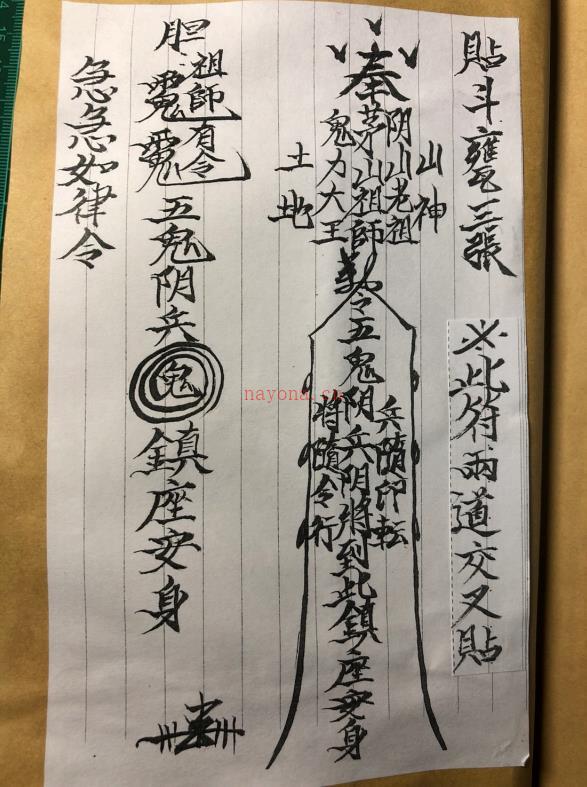 貼斗甕三張
※此符兩道交叉貼
奉
山神
阴山老祖
茅山祖師
鬼力大王
土地
勅令五鬼阴兵阴將到此鎮座安身
兵隨印転
將隨令行
胆
祖師有令
五鬼阴兵
鬼
鎮座安身
急急如律令
nayona.cn